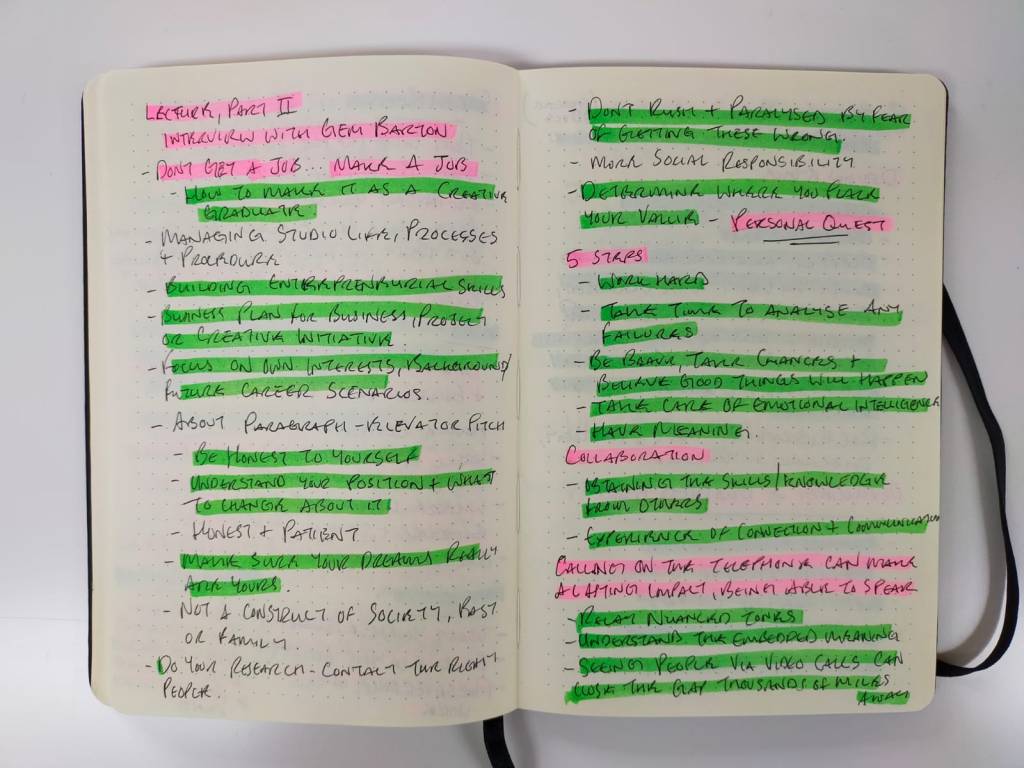 LECTURE, PART II
INTERVIEW WITH GEM BARTON
- DONT GET A JOB... MAKE A JOB
- HOW TO MAKE IT AS A CREATIVE
GRADUATE.
- MANAGING STUDIO LIFE, PROCESSES
+ PROCEDURE
- BUILDING ENTERPRENEURIAL SKILLS
- BUSINESS PLAN FOR BUSINESS, PROJECT
OR CREATIVE INITIATIVE
- FOCUS ON OWN INTERESTS, BACKGROUND/
FUTURE CAREER SCENARIOS.
- ABOUT PARAGRAPH - ELEVATOR PITCH
- BE HONEST TO YOURSELF
- UNDERSTAND YOUR POSITION + WHAT
TO CHANGE ABOUT IT
- HONEST + PATIENT
- MAKE SURE YOUR DREAMS REALLY
ARE YOURS.
- NOT A CONSTRUCT OF SOCIETY, PAST
OR FAMILY.
- DO YOUR RESEARCH - CONTACT THE RIGHT
PEOPLE.
- DONT RUSH + PARALYSED BY FEAR
OF GETTING THESE WRONG.
- MORE SOCIAL RESPONSIBILITY
- DETERMINE WHERE YOU PLACE
YOUR VALUE - PERSONAL QUEST
5 STEPS
- WORK HARD
- TAKE TIME TO ANALYSE ANY
FAILURES
- BE BRAVE, TAKE CHANCES +
BELIEVE GOOD THINGS WILL HAPPEN
- TAKE CARE OF EMOTIONAL INTELLIGENCE
- HAVE MEANING.
COLLABORATION
- OBTAINING THE SKILLS/KNOWLEDGE
FROM OTHERS
- EXPERIENCE OF CONNECTION + COMMUNICATION
CALLING ON THE TELEPHONE CAN MAKE
A LASTING IMPACT, BEING ABLE TO SPEAK
- RELAY NUANCED TONES
- UNDERSTAND THE EMBEDDED MEANING
- SEEING PEOPLE VIA VIDEO CALLS CAN
CLOSE THE GAP THOUSANDS OF MILES
AWAY